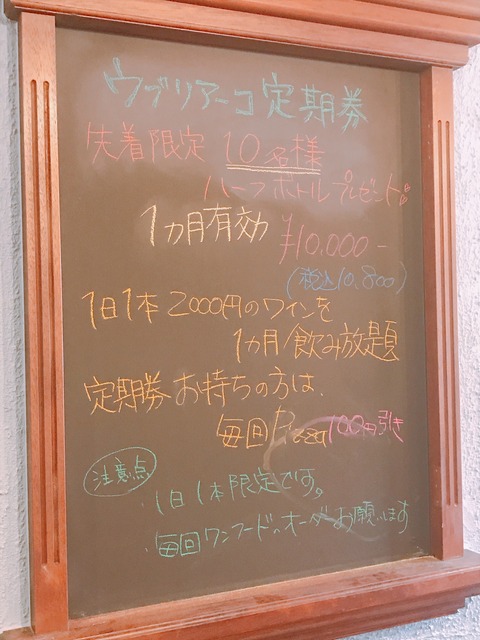 ウブリアーコ定期券
先着限定 10名様
ハーフボトルプレゼント!!
1カ月有効 ¥10,000-
(税込10,800)
1日1本2000円のワインを
1カ月飲み放題
定期勝お持ちの方は、
毎回Pizza100円引き
注意点
1日1本限定です。
毎回ワンフードのオーダーお願いします